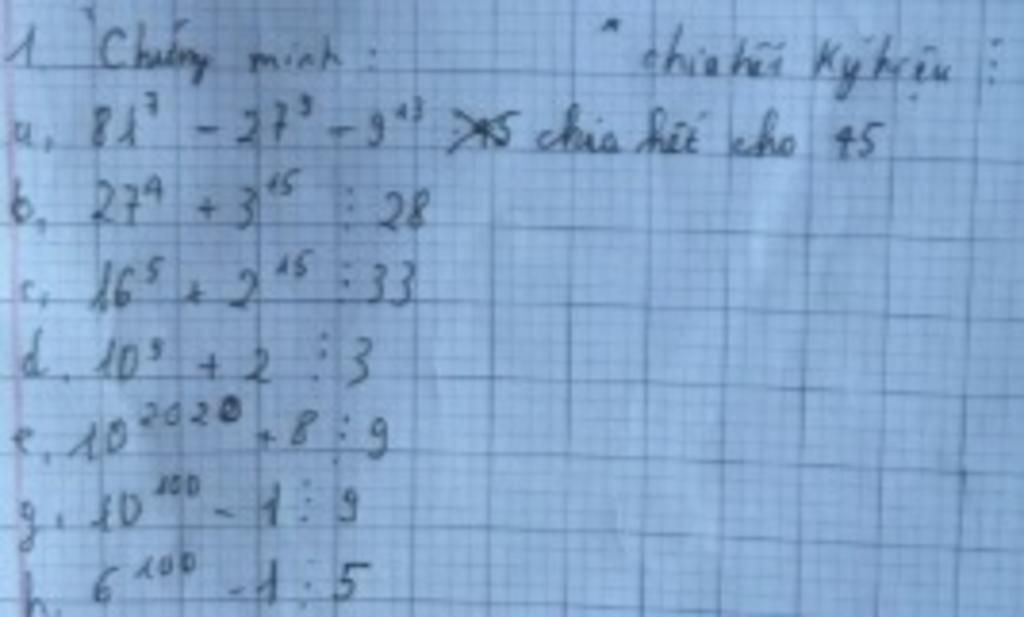 1. Chứng minh : * chia hết ký hiệu ⋮
a, 81⁷ - 27⁹ - 9¹³ chia hết cho 45
b, 27⁴ + 3¹⁵ ⋮ 28
c, 16⁵ + 2¹⁵ ⋮ 33
d, 10⁹ + 2 ⋮ 3
e, 10²⁰²⁰ + 8 ⋮ 9
g, 10¹⁰⁰ - 1 ⋮ 9
h, 6¹⁰⁰ - 1 ⋮ 5